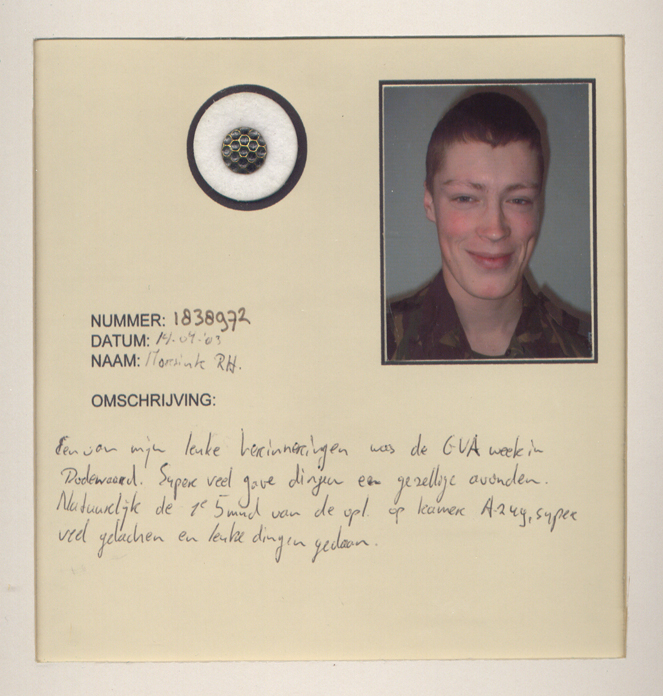 NUMMER: 1838972
DATUM: 14-04-'03
NAAM: R.H.
OMSCHRIJVING:
Een van mijn leuke herinneringen was de GVA week in
Dodewaard. Super veel gave dingen en gezellige avonden.
Natuurlijk de 1e 5mnd van de opl. op kamer A-249, super
veel gelachen en leuke dingen gedaan.